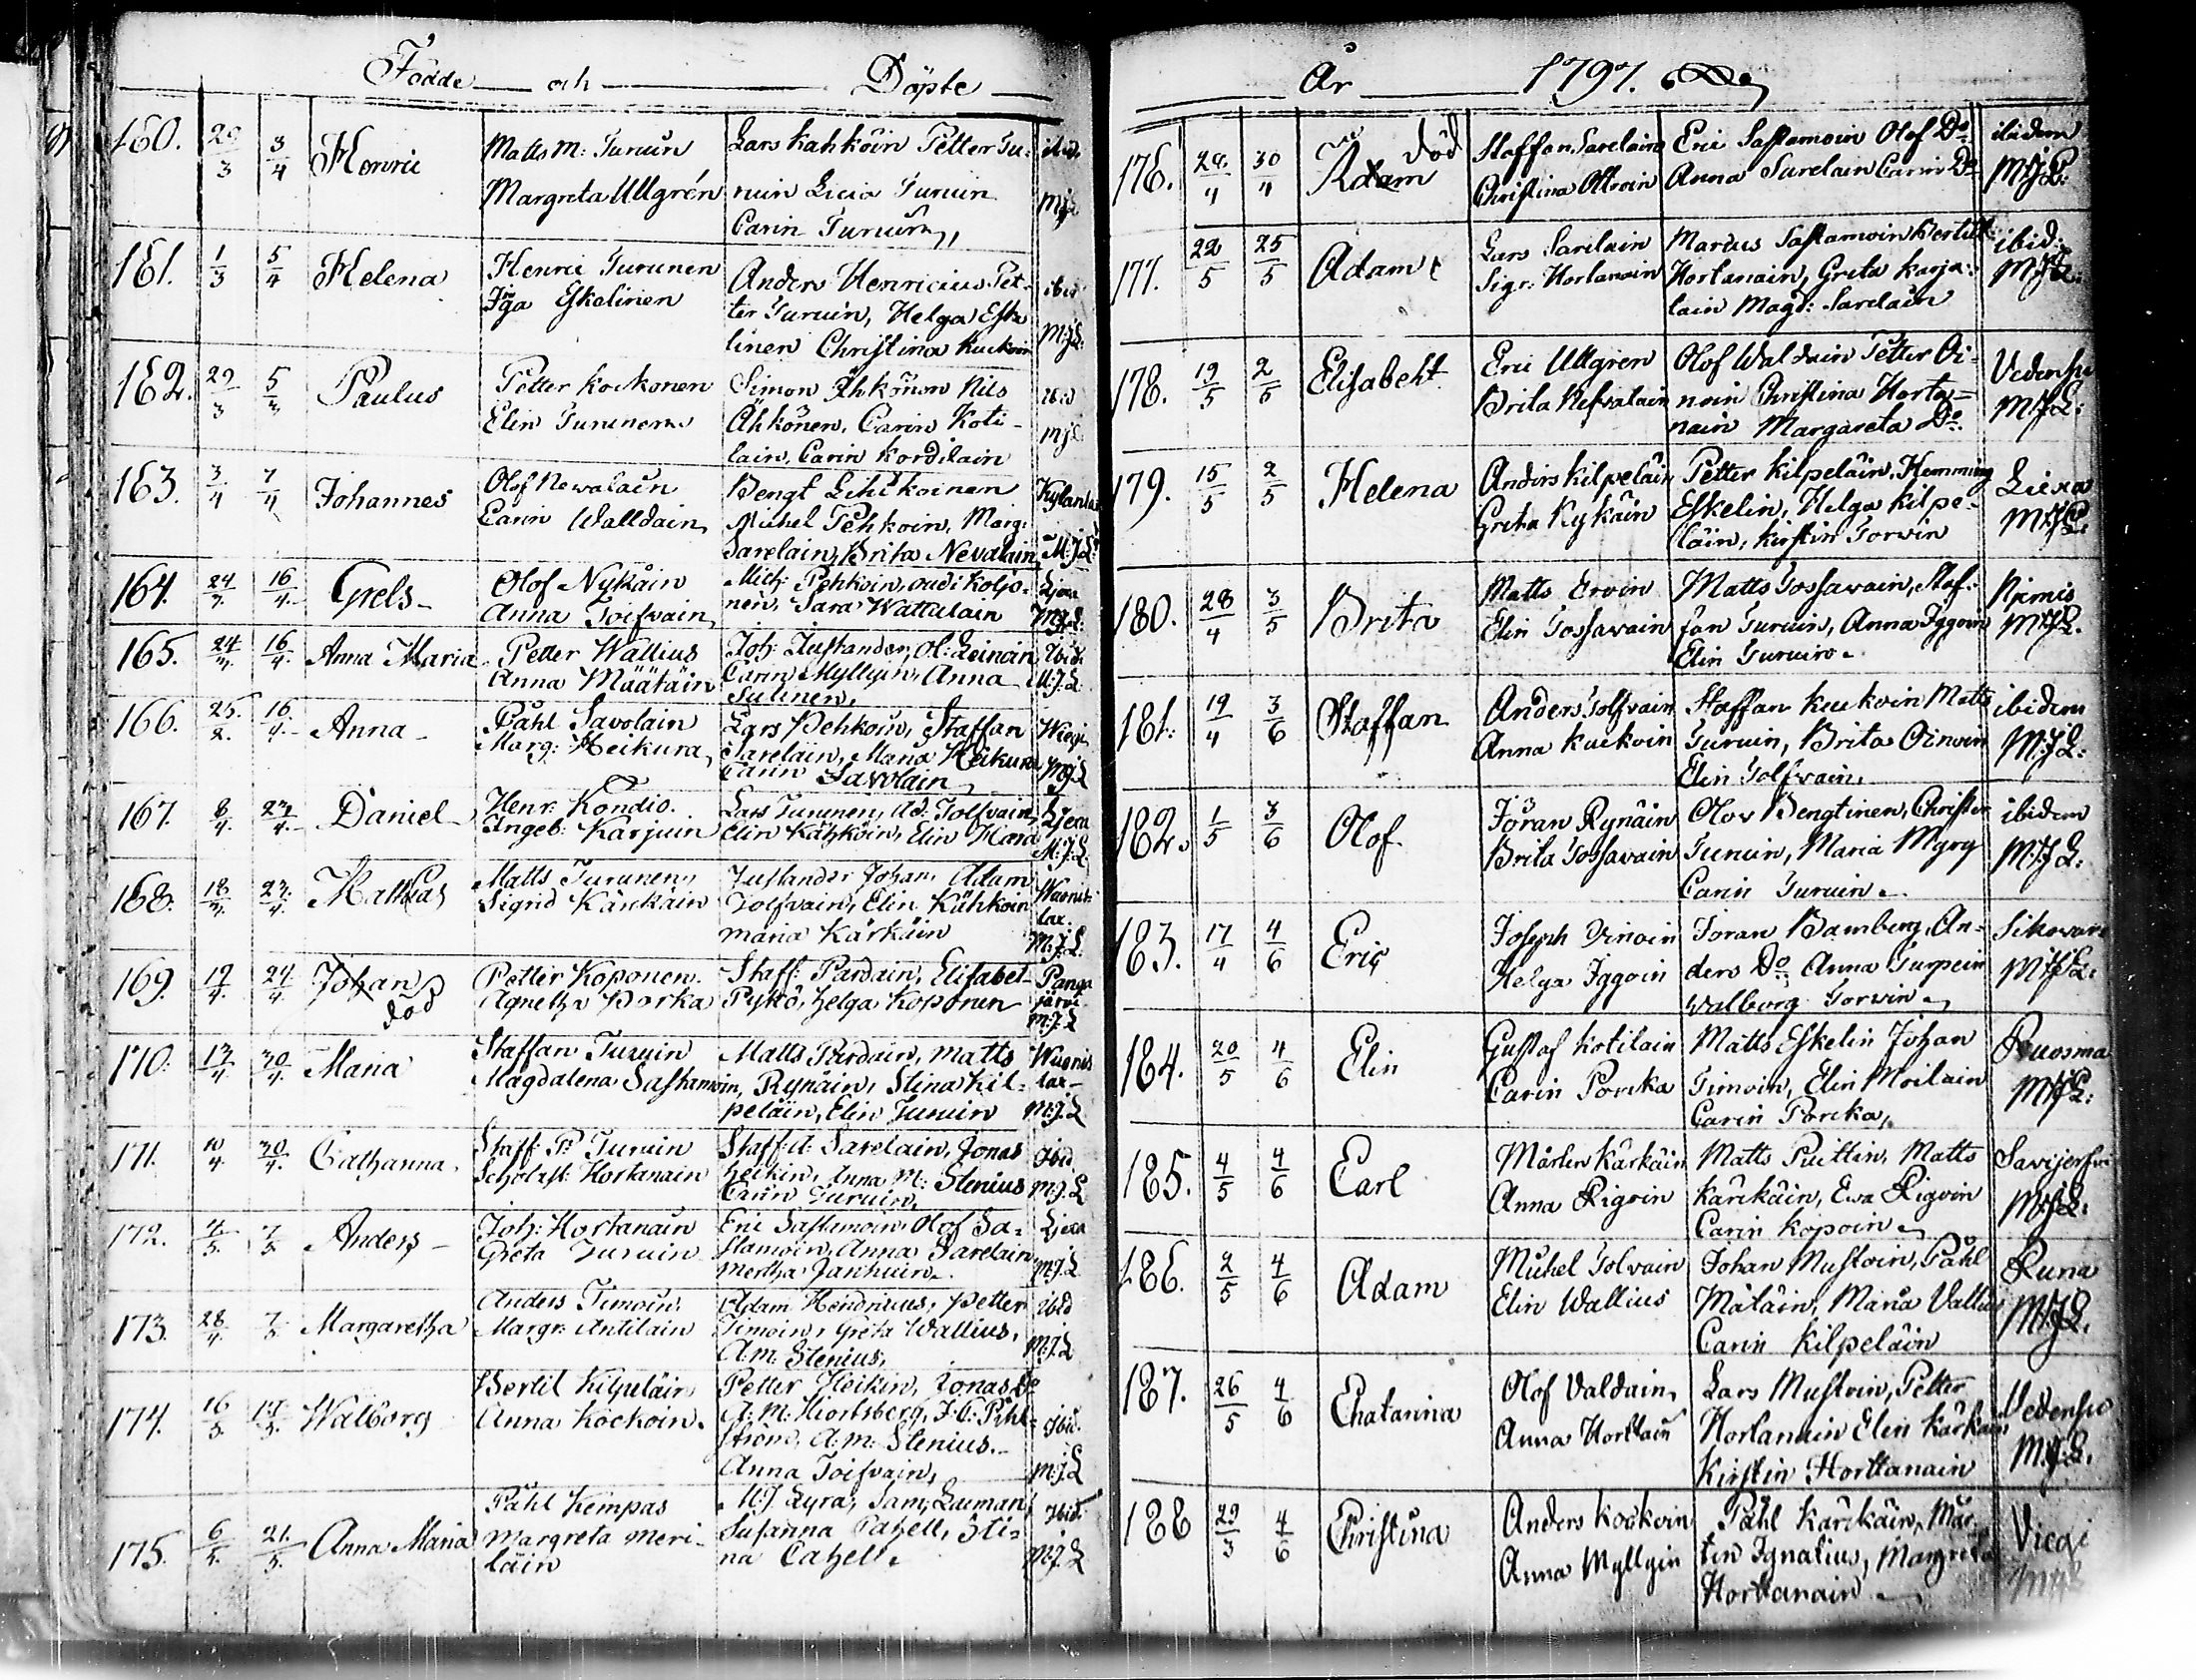 Födde och Döpte
160. 29/3 3/4 Henric Matts M: Turuin Lars Kahköin Petter Tu- ibid.
Margreta Ullgrén ruin Licia Turuin MJL
Carin Turuin,
161. 1/3 5/4 Helena Henric Turunen Anders Henricius Pet- ibid
Iga Eskelinen ter Turuin, Helga Eske M:J:L:
linen Christina Kuckoin
162. 29/3 5/4 Paulus Petter Kockonen Simon Ähkönen Nils ibid
Elin Turunen Ähkönen, Carin Koti- MJL
lain, Carin Kordilain
163. 3/4 7/4 Johannes Olof Newalain Bengt Lihikoinen
Carin Walldain, Michel Pehkoin, Marg: M:J:L:
Sarelain, Brita Nevalain,
164. 24/3. 16/4. Grels Olof Nykäin Mich: Pehkoin, Koljo- Ljexa
Anna Toifvain, nen, Sara Wattulain M:J:L:
165. 24/3. 16/4. Anna Maria Petter Wallius Joh: Zustander, Ol: Leinoin, Ibid:
Anna Määtäin Carin Myllyin, Anna M:J:L
Sulinen,
166. 25/2. 16/4. Anna Påhl Savolain Lars Pehkoin, Staffan Wiegi
Marg: Heikura, Sarelain, Maria Heikura M:J:L
Carin Savolain
167. 8/4. 23/4. Daniel Henr: Kondio. Lars Turunen, Ad: Tolfvain, Ljexa
Ingeb: Karjuin Elin Kähköin, Elin M:J:L
168. 18/3. 23/4. Mathias Matts Turunen, Zustander Johan, Adam
Sigrid Kärckäin Tolfvain, Elin Kähkoin lax.
Maria Kärkäin M:J:L
169. 19/4. 24/4 Johan Petter Koponen. Staff: Pardain, Elisabet Panga
död Agnetha Porka Pykkö, Helga Koponen järvi
M:J:L
170. 13/4. 30/4. Maria Staffan Turuin Matts Pardain, Matts Wuonis
Magdalena Sastamoin, Rynäin, Stina Kil- lax
peläin, Elin Turuin M:J:L
171. 10/4. 30/4. Catharina. Staff: Pr Turuin Staff: A: Sarelain, Jonas Ibid
Scholast: Hortanain Heikin, Anna M: Stenius M:J:L
Carin Turuin,
172. 4/5. 7/5 Anders Joh: Hortanain Eric Sastamoin, Olof Sa- Ljexa
Greta Turuin stamoin, Anna Sarelain M:J:L
Mertha Janhuin.
173. 28/4. 7/5 Margaretha Anders Timoin. Adam Hendricius, Petter ibid
Margr: Antilain Timoin, Greta Wallius, M:J:L
A:M: Stenius,
174. 16/5. 17/5. Walborg Bertil Kilpeläin Petter Heikin, Jonas Do
Anna Kockoin. A: M: Hiortsberg, J: C: Pihl- Ibid.
ström, A:M: Stenius.
Anna Toifvain, M:J:L
175. 6/5. 21/5. Anna Maria Påhl Kempas M:J. Lyra, Sam, Luman, Ibid
Margreta Meri- Susanna Cajzell, Sti-
läin na Cajzell. M:J:L

År 1797.
176. 28/4 30/4 Adam död Staffan Sarelain Eric Sastamoin Olof Do ibidem
Christina Ottroin Anna Sarelain Carin Do M:J:L:
177. 22/5 25/5 Adam Lars Sarelain Marcus Sastamoin Bertill ibid:
Sigr: Hortanain Hortanain, Greta Karja- M:J:L:
lain Magd: Sarelain
178. 19/5 2/5 Elisabeht Eric Ullgren Olof Waldain Petter Oi- Vedensu
Brita Nefvalain noin Christina Horta- M:J:L:
nain Margareta Do.
179. 15/5 2/5 Helena Anders Kilpeläin Petter Kilpeläin, Hemming Liexa
Greta Kykäin Eskelin, Helga Kilpe- M:J:L
läin, Kirstin Torvin
180. 28/4 3/5 Brita Matts Ervin Matts Tossavain, Staf- Nurmis
Elin Tossavain fan Turuin, Anna Iggoin M:J:L.
Elin Turuin.
181. 19/4 3/6 Staffan Anders Tolfvain Staffan Kuckoin Matts ibidem
Anna Kuckoin Turuin, Brita Oinoin M:J:L:
Elin Tolfvain,
182. 1/5 3/6 Olof Jöran Rynäin Olov Bengtinen, Christer ibidem
Brita Tossavain Turuin, Maria Mgry M:J:L:
Carin Turuin.
183. 17/4 4/6 Eric Joseph Oinoin Jöran Bamberg, An- Sikovara
Helga Iggoin ders Do, Anna Turpein M:J:L:
Walborg Torvin
184. 20/5 4/6 Elin Gustaf Kotilain Matts Eskelin Johan Ruosma
Carin Porcka Timoin, Elin Moilain M:J:L:
Carin Porcka,
185. 4/5 4/6 Carl Mårten Kärkäin Matts Puittin, Matts Savijerfvi
Anna Rigoin Kärckäin, Ewa Rigoin M:J:L:
Carin Kopoin
186. 2/5 4/6 Adam Michel Tolvain Johan Mustoin, Påhl Runa
Elin Wallius Mätäin, Maria Vallius M:J:L.
Carin Kilpeläin
187. 26/5 4/6 Chatarina Olof Valdain, Lars Mustoin, Petter Vedensu
Anna Hortlain Hortanain Elin Kärkäin M:J:L.
Kirstin Horttanain
188 29/3 4/6 Christina Anders Kockoin Påhl Kärckäin, Mår- Viegi
Anna Myllyin ten Ignatius, Margreta
Horttanain